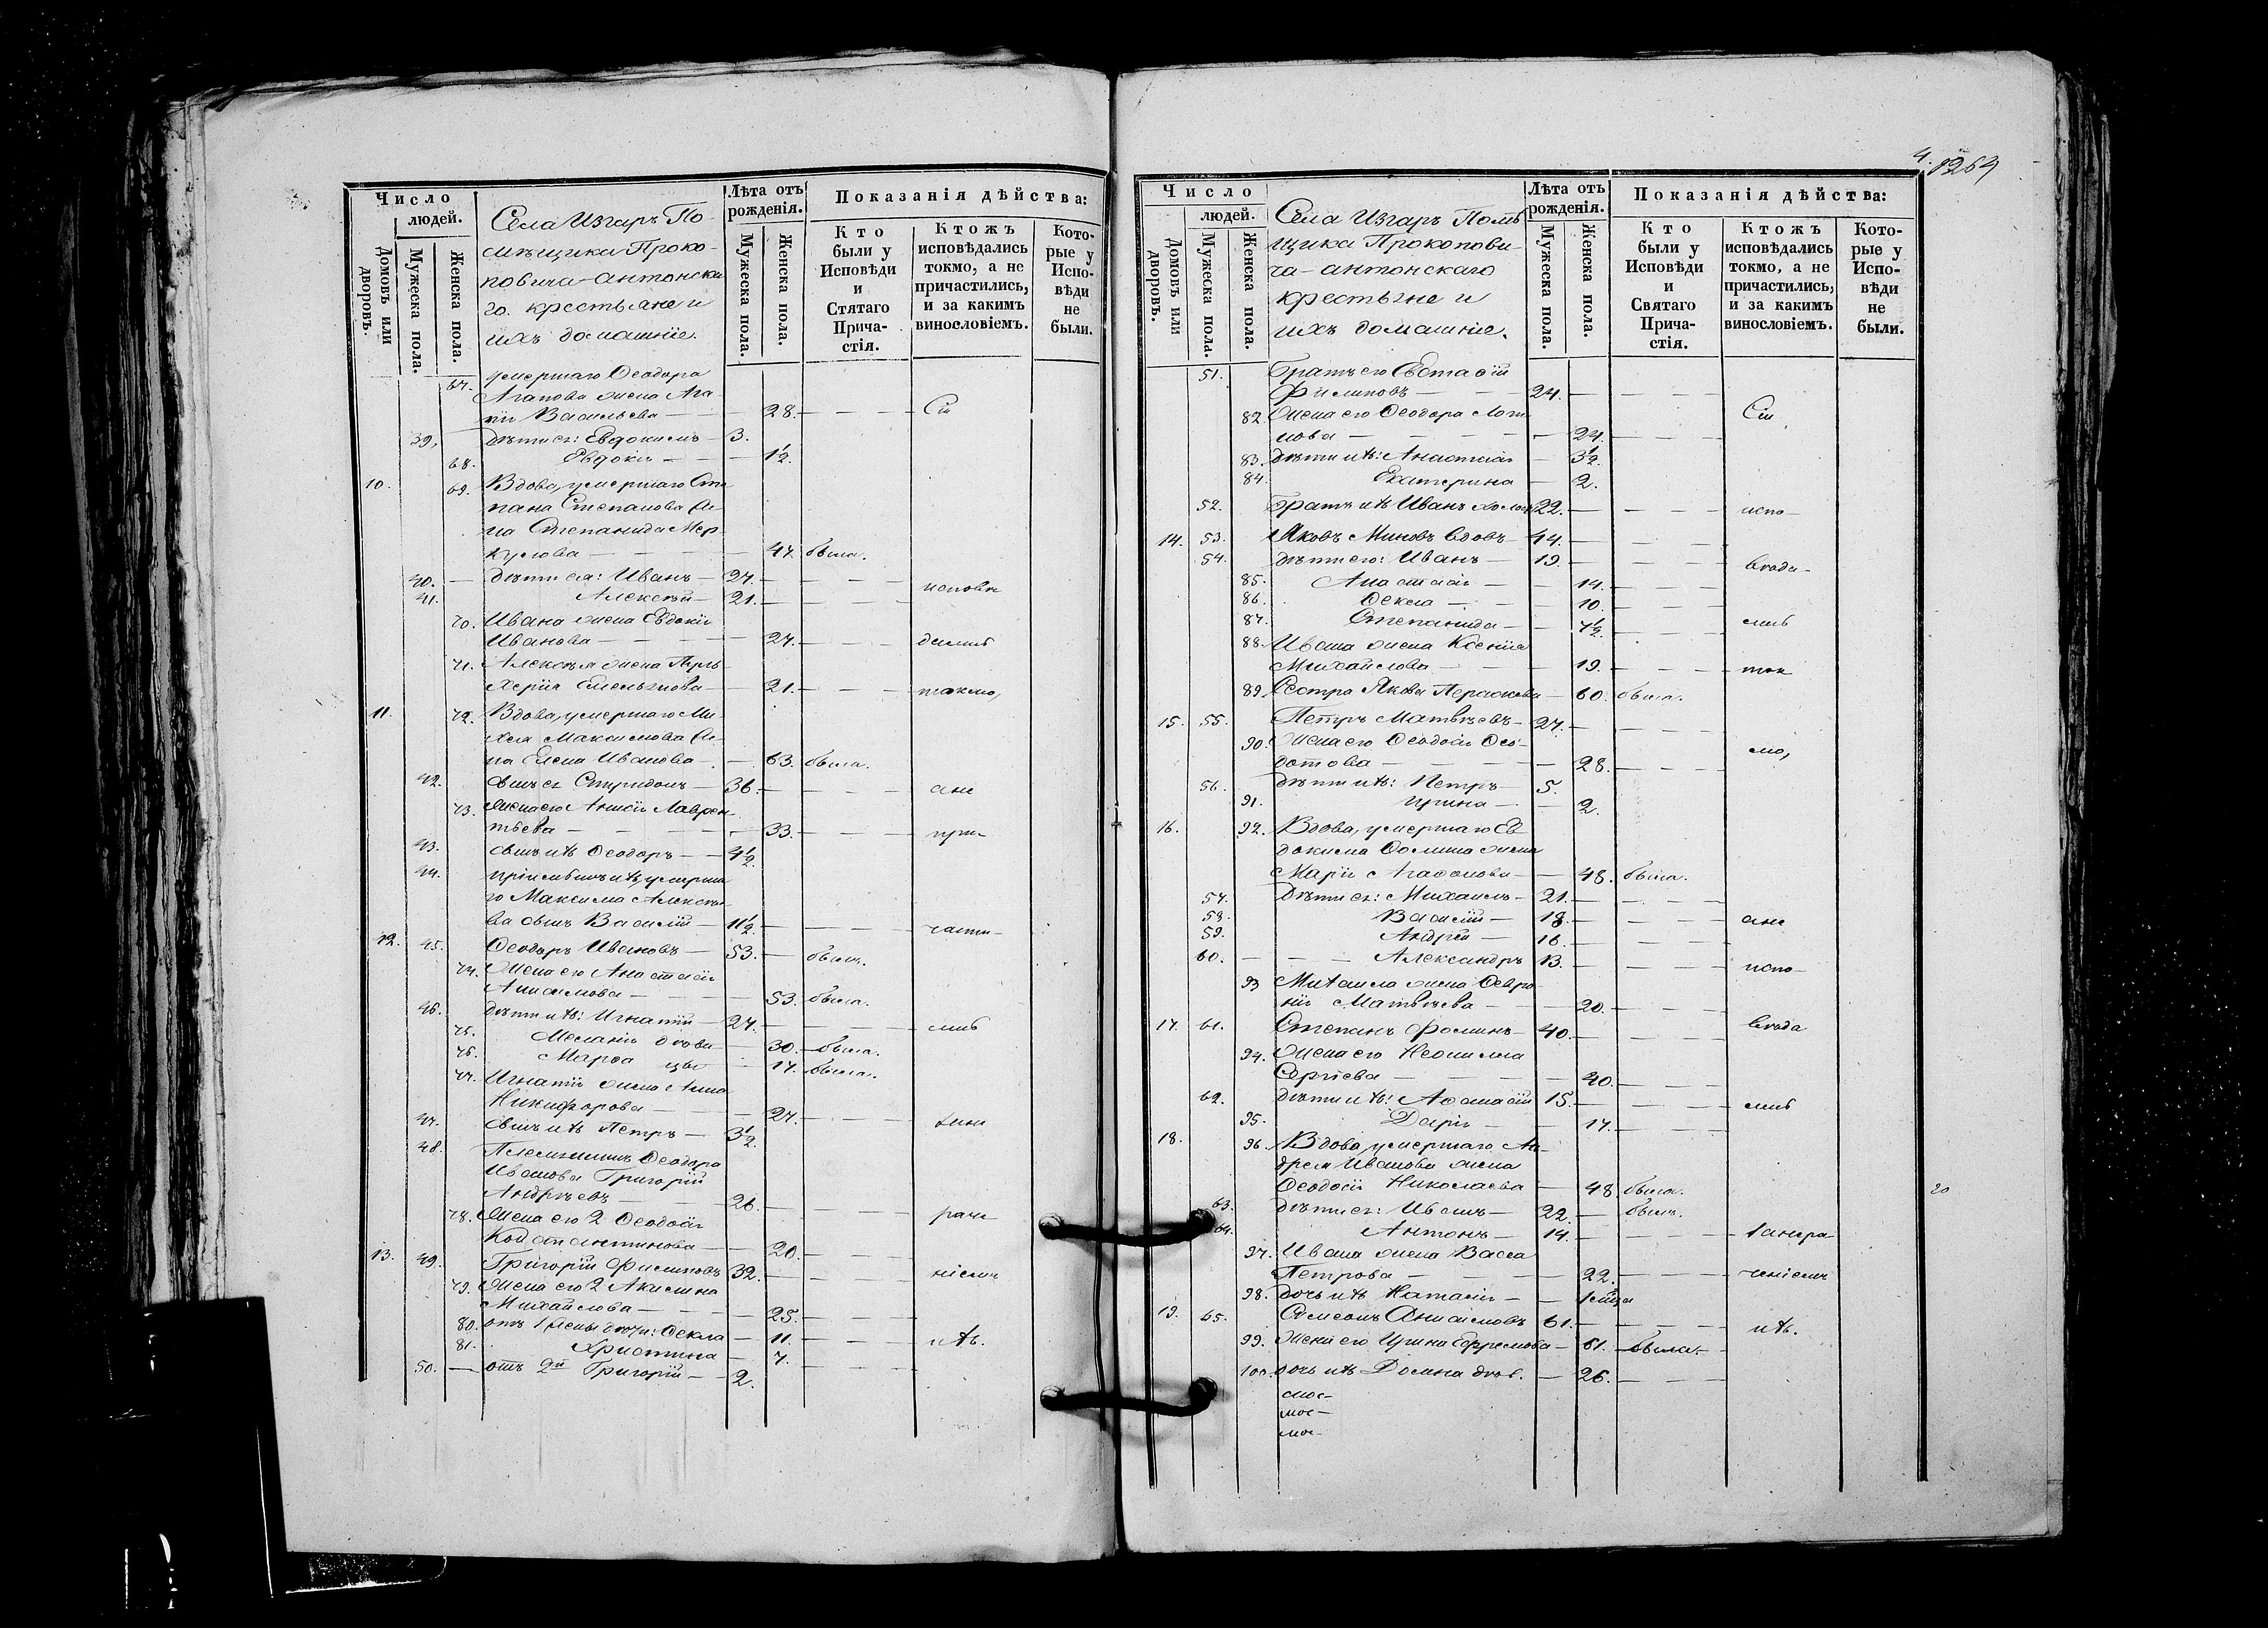 Число
людей.
Домовъ или дворовъ.
Мужеска пола.
Женска пола.
Села Изгаръ По
мѣщика Проко-
повича-Антонска
го крестьяне и
ихъ домашніе.
Лѣта отъ
рожденія.
Мужеска пола.
Женска пола.
Показанія дѣйства:
Кто
были у
Исповѣди
и
Стятаго
Прича-
стія.
Ктожъ
исповѣдались
токмо, а не
причастились,
и за какимъ
винословіемъ.
Кото-
рые у
Испо-
вѣди
не
были.
67. умершаго Ѳеодора
Агапова жена Ага
Васильева — — 28. — — — Сіи
39. дѣти ея: Евдокимъ — 3.
68. Евдокія — — 1½.
10. 69. Вдова, умершаго Сте
пана Степанова же-
на Степанида Мер-
кулова — — 47. была.
40. — дѣти ея: Иванъ — 27. — — — исповѣ
41. Алексѣй — 21. — — —
70. Ивана жена Евдокія
Иванова — — 27. — — — дались
71. Алексѣя жена Пуль-
херія Емельянова — 21. — — — токмо,
11. 72. Вдова, умершаго Ми-
хея Максимова же-
на Елена Иванова — 63. была.
42. сынъ ея Спиридонъ — 36. — — — а не
73. Жена его Анисія Лаврен
тьева — — — 33. — — — при-
43. сынъ ихъ Ѳеодоръ — 4½.
44. пріемышъ ихъ, умерша
го Максима Алексѣе-
ва сынъ Василій — 11½. — — — части-
12. 45. Ѳеодоръ Ивановъ — 53. — былъ.
74. Жена его Анастасія
Анисимова — — 53. была.
46. дѣти ихъ: Игнатій — 27. — — — лись
75. Меланія вдова — 30. — была.
76. Марѳа — 17. была.
77. Игнатія жена Анна
Никифорова — — 27. — — —
47. сынъ ихъ Петръ — 3½.
48. Племянникъ Ѳеодора
Иванова Григорій
Андреевъ — — 26. — — —
78. Жена его 2 Ѳеодосія
Константинова — 20. — — —
13. 49. Григорій Филиповъ 32. — — — ніемъ
79. Жена его 2 Акилина
Михайлова — — 25. — — —
80. отъ 1 жены дочи: Ѳекла — 11. — — — ихъ.
81. Христина — 7. — — —
50. — отъ 2й Григорій — 2.
4. 1264
Число
людей.
Домовъ или дворовъ.
Мужеска пола.
Женска пола.
Села Изгаръ Помѣ
щика Прокопови-
ча-Антонскаго
крестьяне и
ихъ домашніе.
Лѣта отъ
рожденія.
Мужеска пола.
Женска пола.
Показанія дѣйства:
Кто
были у
Исповѣди
и
Святаго
Прича-
стія.
Ктожъ
исповѣдались
токмо, а не
причастились,
и за какимъ
винословіемъ.
Кото-
рые у
Испо-
вѣди
не
были.
51. Братъ его Евстафій
Филиповъ — — 24. — — — —
82. Жена его Ѳеодора Логи
нова — — — 24. — — — Сіи
83. дѣти ихъ: Анастасія — 3½.
84. Екатерина — 2.
52. Братъ ихъ Иванъ холос 22. — — — испо-
14. 53. Яковъ Миновъ вдовъ — 44. — — —
54. дѣти его: Иванъ — 19. — — — вѣда-
85. Анастасія — — 14. — — —
86. Ѳекла — — 10. — — —
87. Степанида — — 7½. — — — лись
88. Ивана жена Ксенія
Михайлова — — 19. — — — ток
89. Сестра Якова Параскева — 60. была.
15. 55. Петръ Матвѣевъ — 27. — — —
90. Жена его Ѳеодосія Ѳео-
дотова — — — 28. — — — мо,
56. дѣти ихъ: Петръ — 5.
91. Ирина — — 2.
16. 92. Вдова, умершаго Ев
докима Ѳомина жена
Марія Агаѳонова — 48. была.
57. Дѣти ея: Михаилъ — 21. — — —
58. Василій — 18. — — — а не
59. Андрей — 16. — — —
60. — — — Александръ 13. — — — испо-
93 Михаила жена Ѳевро
нія Матвѣева — 20. — — —
17. 61. Степанъ Фоминъ — 40. — — — вѣда
94. Жена его Неонилла
Сергіева — — 40. — — —
62. дѣти ихъ: Аѳанасій 15. — — — лись
95. Дарія — — 17. — — —
18. 96. Вдова, умершаго Ан-
дрея Иванова жена
Ѳеодосія Николаева — 48 была.
63. дѣти ея: Иванъ — 22. — былъ.
64. Антонъ — 14. — — —
97. Ивана жена Васса
Петрова — — — 22. — — —
98. дочь ихъ Наталія —
19. 65. Симеонъ Анисимовъ 61. — — — ихъ.
99. Жена его Ирина Ефремова — 61. была. —
100. дочь ихъ Домна — 26. — — —
20